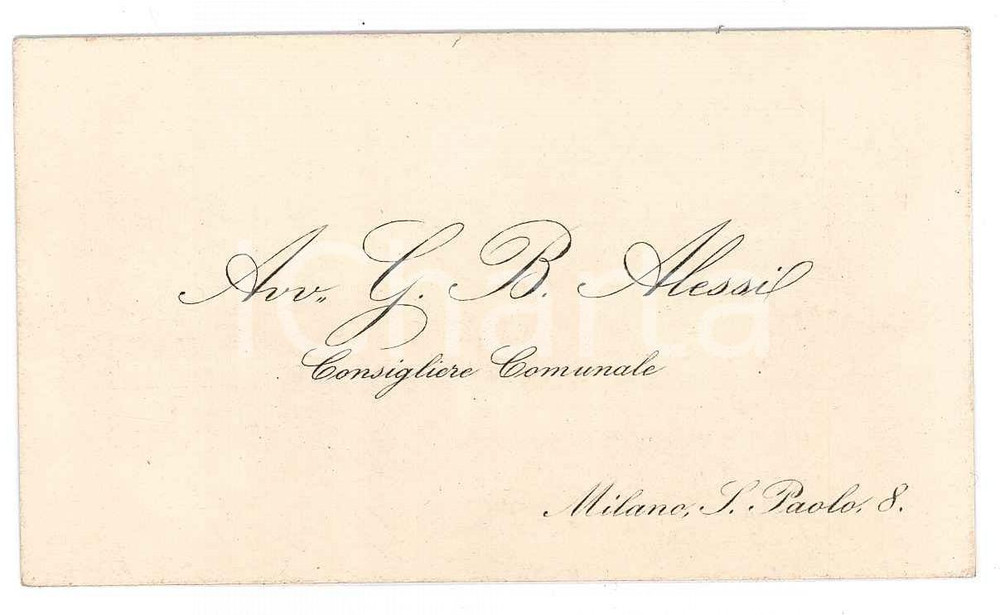 Avv.. G. B. Alessi
Consigliere Comunale
Milano, S. Paolo, 8.
iCharta